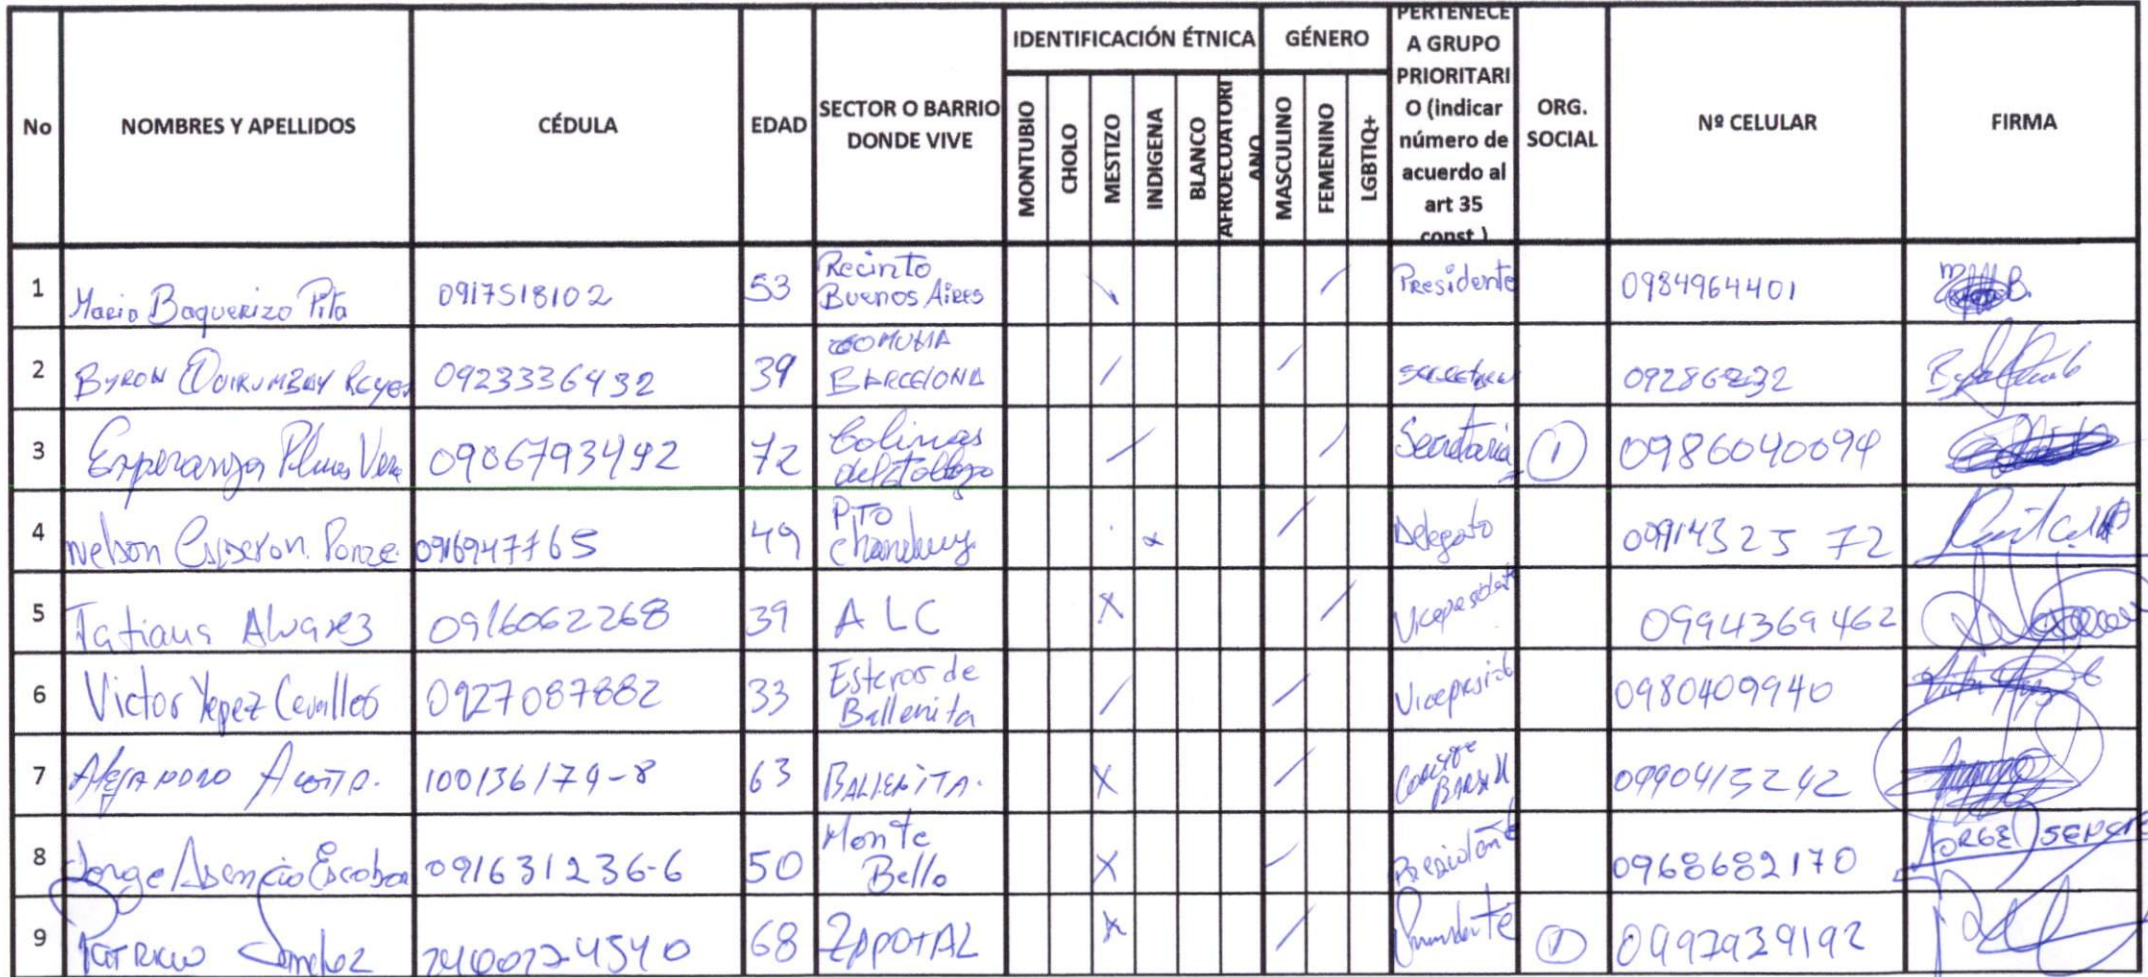 No
NOMBRES Y APELLIDOS
CÉDULA
EDAD
SECTOR O BARRIO
DONDE VIVE
IDENTIFICACIÓN ÉTNICA
MONTUBIO
CHOLO
MESTIZO
INDIGENA
BLANCO
AFROECUATORI
ANO
GÉNERO
MASCULINO
FEMENINO
LGBTIQ+
PERTENECE
A GRUPO
PRIORITARI
O (indicar
número de
acuerdo al
art 35
const.)
ORG.
SOCIAL
Nº CELULAR
FIRMA
1 Baquerizo Pita 0917518102 53 Recinto Buenos Aires / / Presidente 0984964401
2 BYRON QUIRUMBAY Reyes 0923336432 39 COMUNA BARCELONA / /
3 Esperanza Vera 0906793492 72 Colinas / / Secretaria 1 0986040094
4 Nelson Ponce 49 PTO Chanduy x / Delegado
5 Tatiana Alvarez 0916062268 39 ALC X / 0994369462
6 Victor Yepez Cevallos 0927087882 33 Esteros de Ballenita / / 0980409940
7 100136174-8 63 BALLENITA. X / 0990415242
8 Jorge Asencio Escobar 091631236-6 50 Monte Bello X / Presidente 0968682170 JORGE
9 Sanchez 68 ZAPOTAL x / 1 0997939192